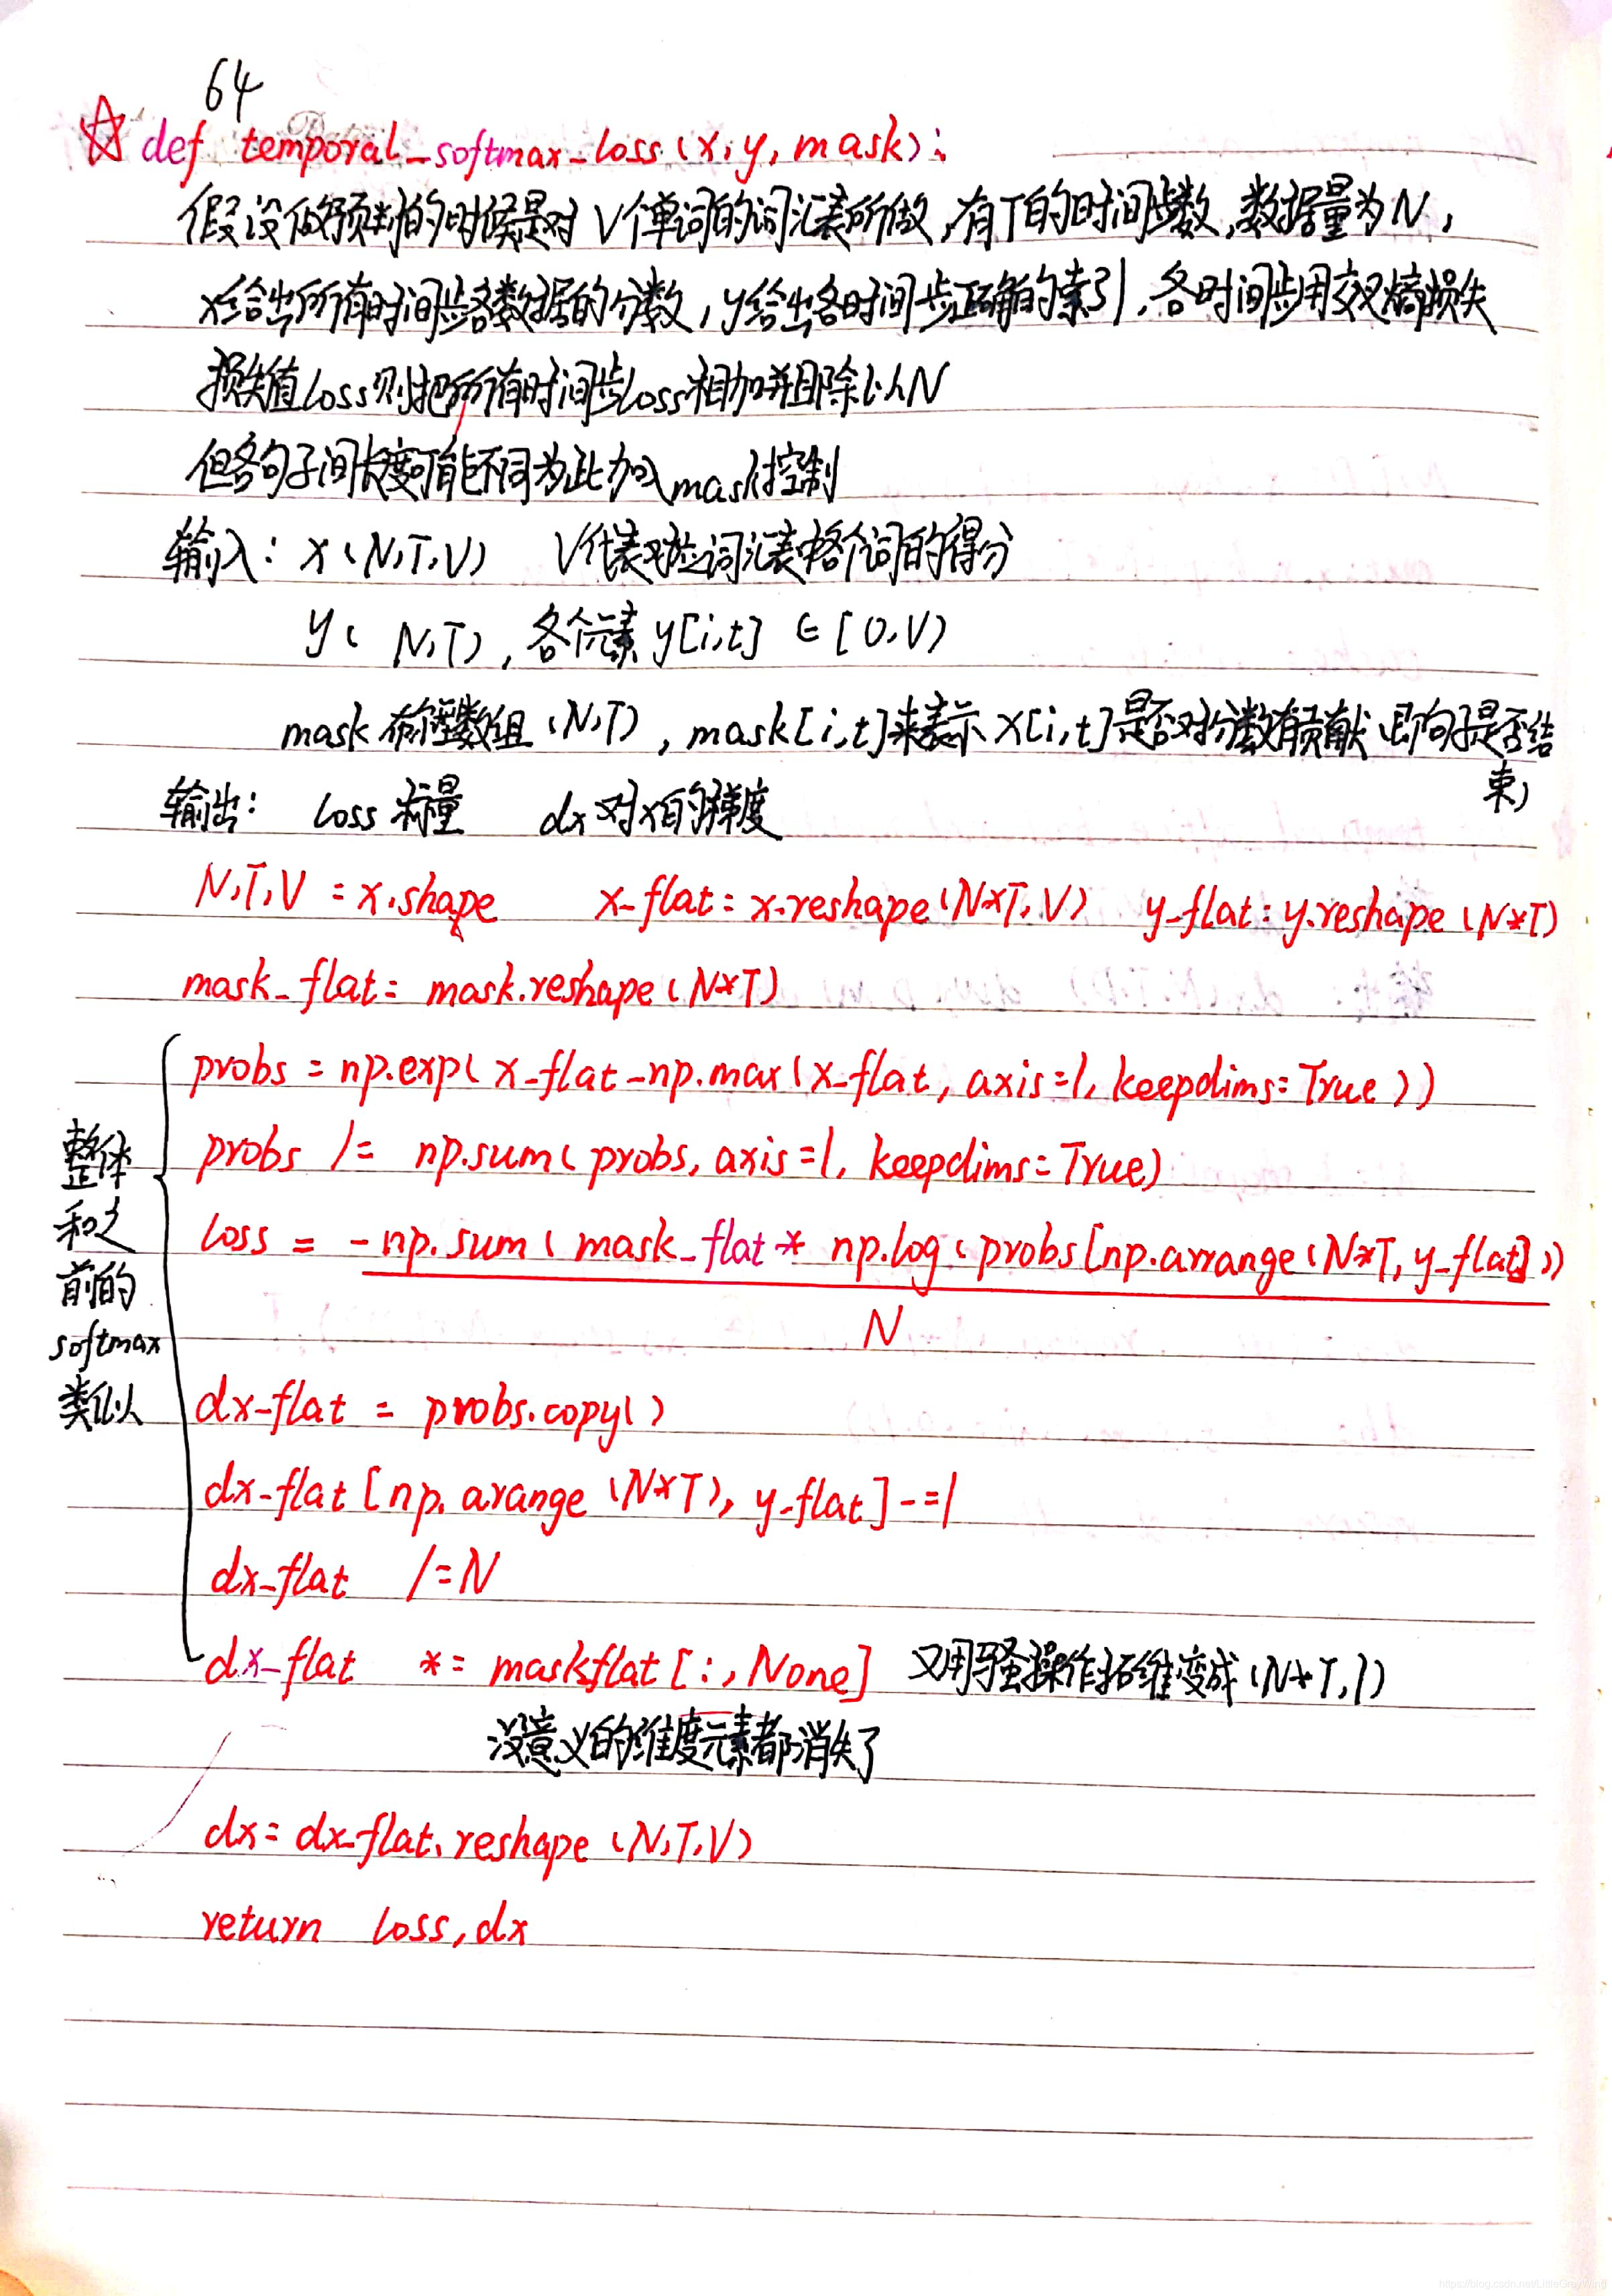 64
☆ def temporal_softmax_loss(x, y, mask):
假设做预判的时候是对V个单词的词汇表所做,有T的时间步数,数据量为N,
x给出所有时间步各数据的分数,y给出各时间步正确的索引.各时间步用交叉熵损失
损失值loss则把所有时间步loss相加并且除以N
但各句子间长度可能不同为此加入mask控制
输入: x(N,T,V) V代表对应词汇表中各个词的得分
y( N,T),各个元素y[i,t] ∈ [0,V)
mask 布尔型数组(N,T),mask[i,t]来表示x[i,t]是否对分数有贡献(即句子是否结
束)
输出: loss 标量 dx 对x的梯度
N,T,V = x.shape x-flat = x.reshape(N*T,V) y-flat = y.reshape(N*T)
mask_flat = mask.reshape(N*T)
probs = np.exp(x-flat-np.max(x-flat, axis=1, keepdims=True))
probs /= np.sum(probs, axis=1, keepdims=True)
loss = -np.sum(mask_flat * np.log(probs[np.arrange(N*T, y-flat]))
N
dx-flat = probs.copy()
dx-flat[np.arange(N*T), y-flat] -=1
dx-flat /=N
dx-flat *= maskflat[:,None] 又用骚操作拓维变成(N*T,1)
没意义的维度元素都消失了
整体
和之
前的
softmax
类似
dx = dx-flat.reshape(N,T,V)
return loss, dx
https://blog.csdn.net/LittleGreyWing